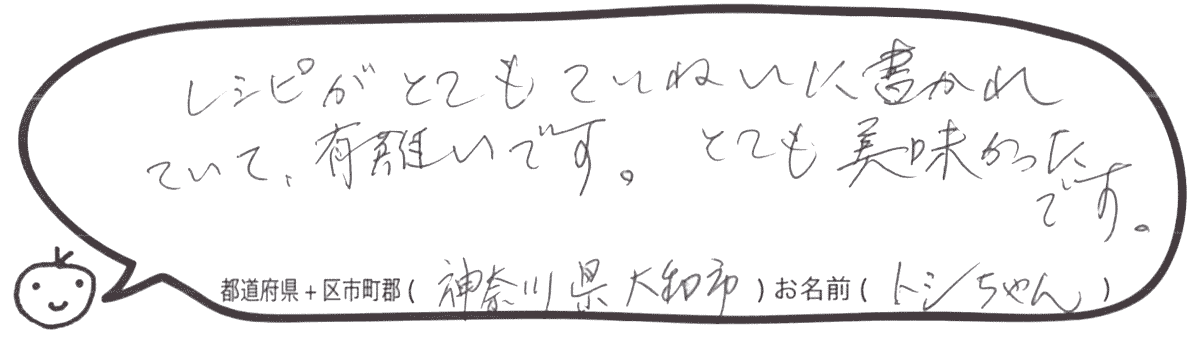 レシピがとてもていねいに書かれ
ていて、有難いです。とても美味かった
です。
都道府県+区市町郡(神奈川県大和市)お名前(トシちゃん)